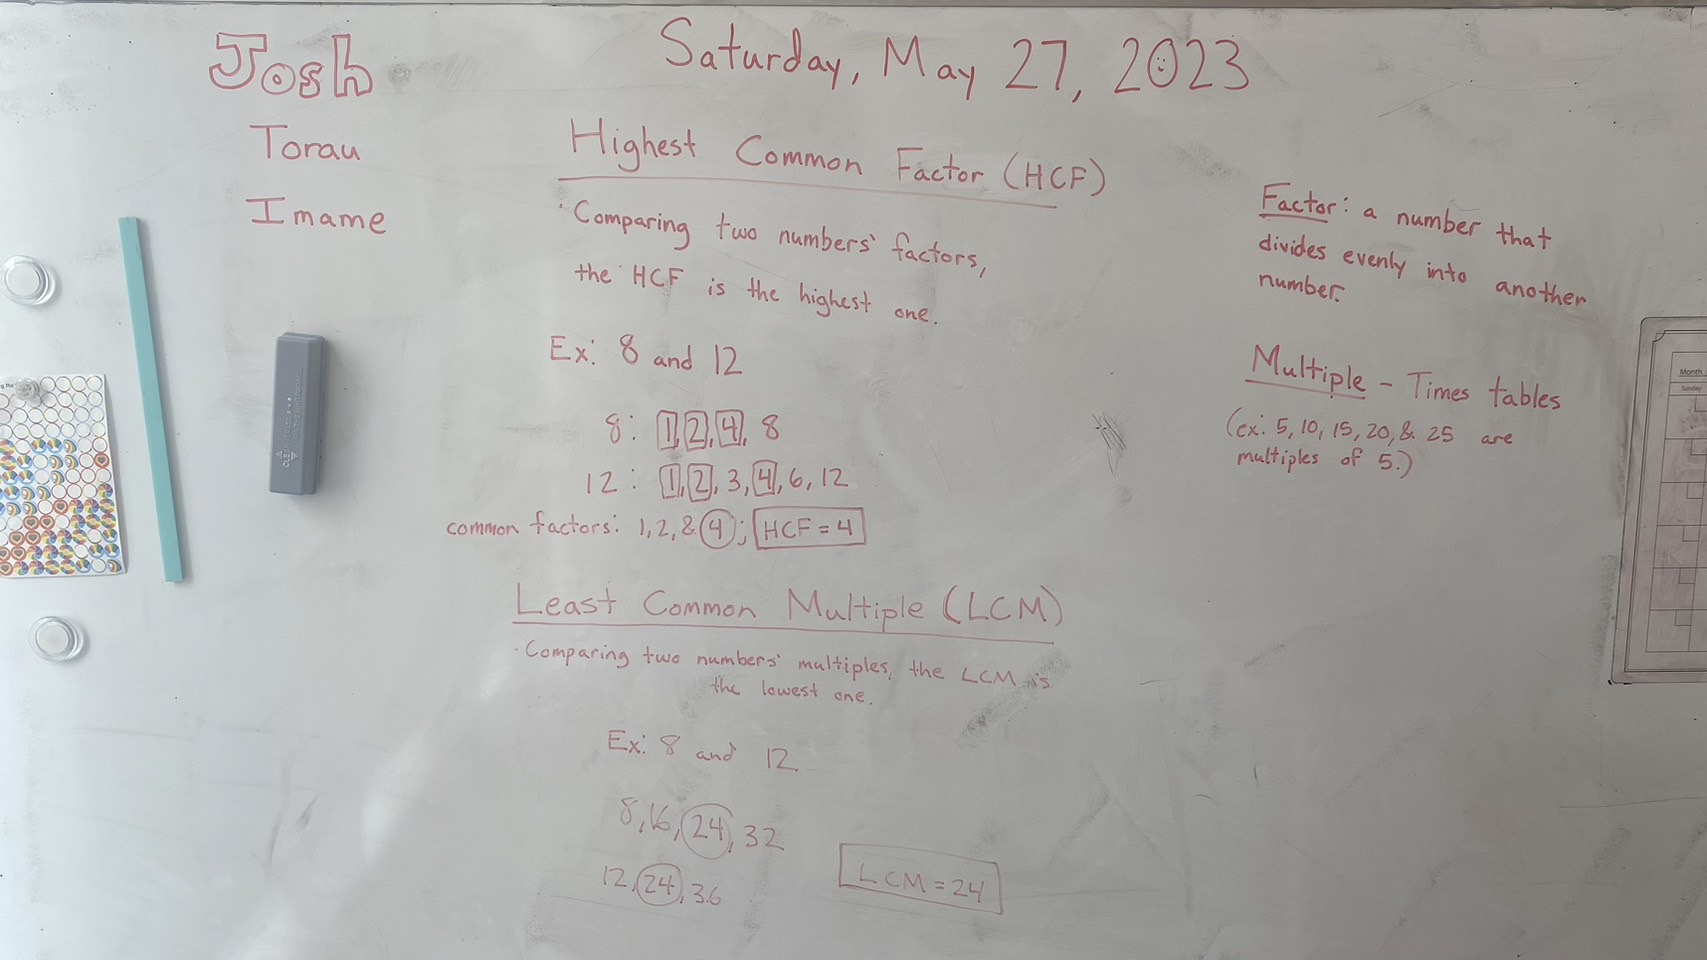 Josh
Torau
Imame
Saturday, May 27, 2023
Highest Common Factor (HCF)
· Comparing two numbers' factors,
the HCF is the highest one.
Ex: 8 and 12
8: 1, 2, 4, 8
12: 1, 2, 3, 4, 6, 12
common factors: 1, 2, & 4; HCF = 4
Least Common Multiple (LCM)
· Comparing two numbers' multiples, the LCM is
the lowest one.
Ex: 8 and 12
8, 16, 24, 32
12, 24, 36
LCM = 24
Factor: a number that
divides evenly into another
number.
Multiple - Times tables
(ex: 5, 10, 15, 20, & 25 are
multiples of 5.)
Month
Sunday